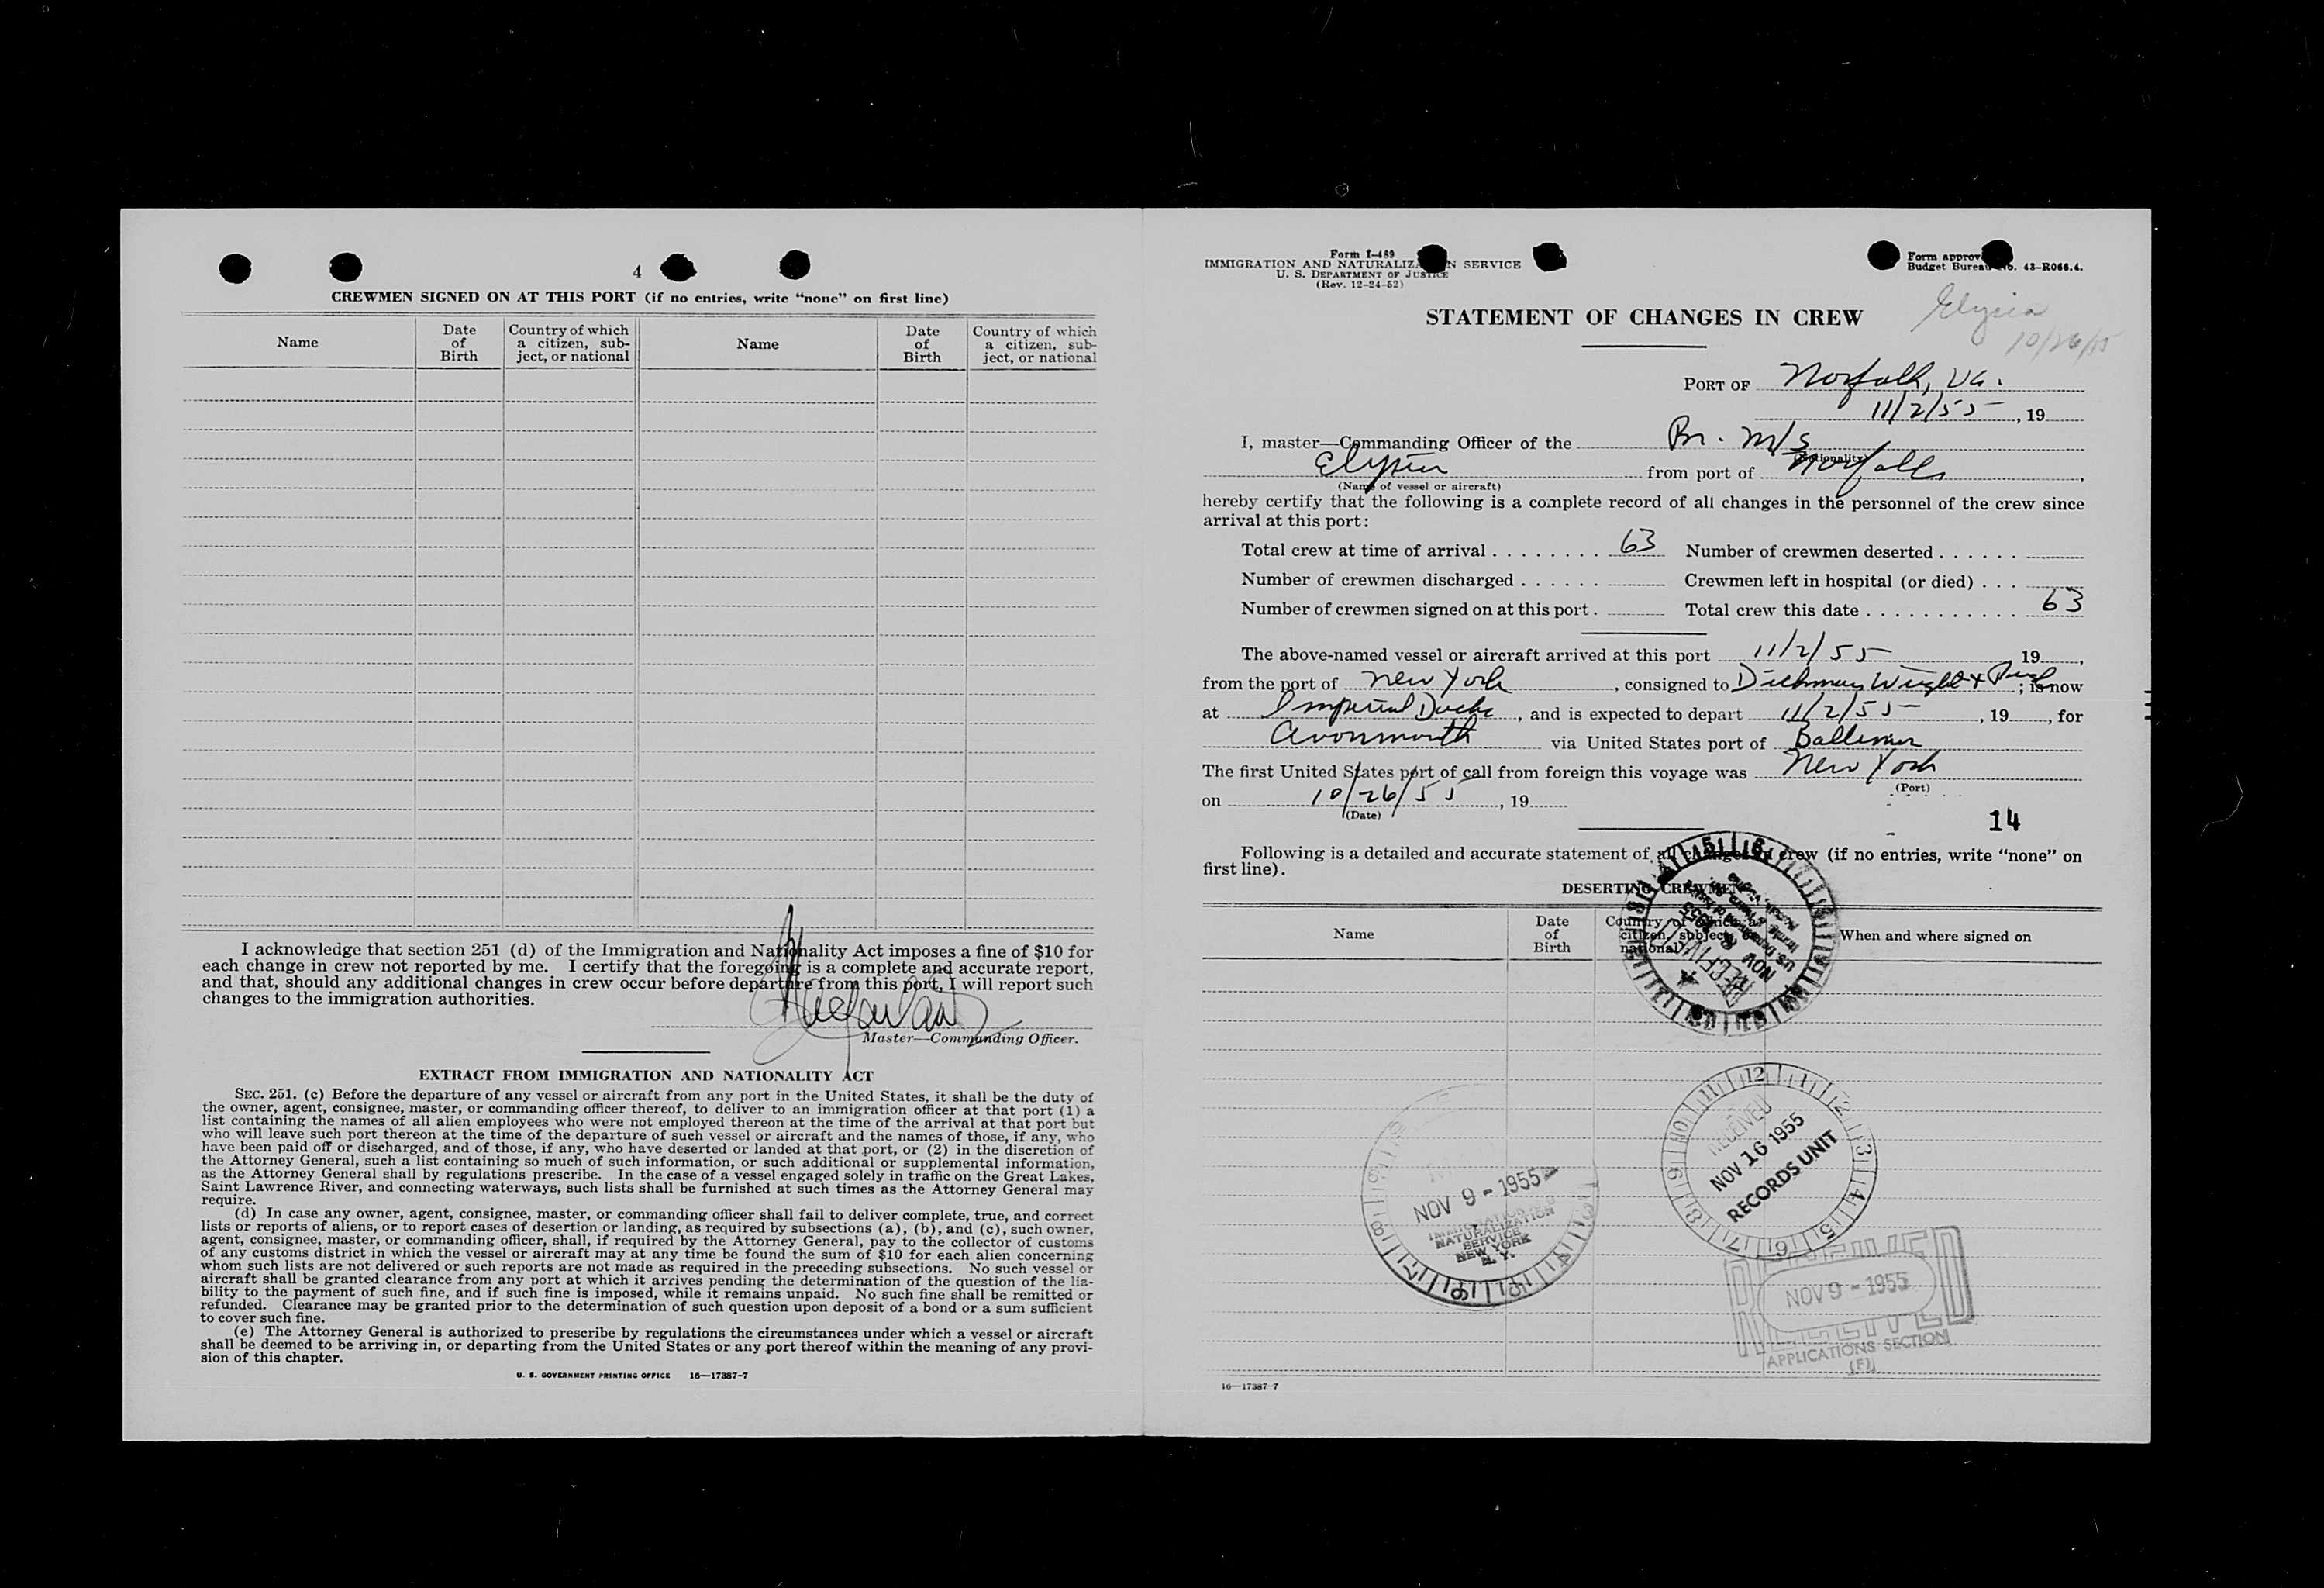 4
CREWMEN SIGNED ON AT THIS PORT (if no entries, write “none” on first line)
Name
Date of Birth
Country of which a citizen, sub-ject, or national
Name
Date of Birth
Country of which a citizen, sub-ject, or national
I acknowledge that section 251 (d) of the Immigration and Nationality Act imposes a fine of $10 for
each change in crew not reported by me. I certify that the foregoing is a complete and accurate report,
and that, should any additional changes in crew occur before departure from this port, I will report such
changes to the immigration authorities.
Master—Commanding Officer.
EXTRACT FROM IMMIGRATION AND NATIONALITY ACT
SEC. 251. (c) Before the departure of any vessel or aircraft from any port in the United States, it shall be the duty of
the owner, agent, consignee, master, or commanding officer thereof, to deliver to an immigration officer at that port (1) a
list containing the names of all alien employees who were not employed thereon at the time of the arrival at that port but
who will leave such port thereon at the time of the departure of such vessel or aircraft and the names of those, if any, who
have been paid off or discharged, and of those, if any, who have deserted or landed at that port, or (2) in the discretion of
the Attorney General, such a list containing so much of such information, or such additional or supplemental information,
as the Attorney General shall by regulations prescribe. In the case of a vessel engaged solely in traffic on the Great Lakes,
Saint Lawrence River, and connecting waterways, such lists shall be furnished at such times as the Attorney General may
require.
(d) In case any owner, agent, consignee, master, or commanding officer shall fail to deliver complete, true, and correct
lists or reports of aliens, or to report cases of desertion or landing, as required by subsections (a), (b), and (c), such owner,
agent, consignee, master, or commanding officer, shall, if required by the Attorney General, pay to the collector of customs
of any customs district in which the vessel or aircraft may at any time be found the sum of $10 for each alien concerning
whom such lists are not delivered or such reports are not made as required in the preceding subsections. No such vessel or
aircraft shall be granted clearance from any port at which it arrives pending the determination of the question of the lia-
bility to the payment of such fine, and if such fine is imposed, while it remains unpaid. No such fine shall be remitted or
refunded. Clearance may be granted prior to the determination of such question upon deposit of a bond or a sum sufficient
to cover such fine.
(e) The Attorney General is authorized to prescribe by regulations the circumstances under which a vessel or aircraft
shall be deemed to be arriving in, or departing from the United States or any port thereof within the meaning of any provi-
sion of this chapter.
U. S. GOVERNMENT PRINTING OFFICE 16—17387-7
Form I-489
IMMIGRATION AND NATURALIZATION SERVICE
U. S. DEPARTMENT OF JUSTICE
(Rev. 12-24-52)
Form approv
Budget Bureau No. 43-R066.4.
Elysia
10/26/55
STATEMENT OF CHANGES IN CREW
PORT OF Norfolk, Va.
11/2/55, 19
I, master—Commanding Officer of the Br. M/S
(Nationality)
Elysia from port of Norfolk,
(Name of vessel or aircraft)
hereby certify that the following is a complete record of all changes in the personnel of the crew since
arrival at this port:
Total crew at time of arrival 63 Number of crewmen deserted
Number of crewmen discharged Crewmen left in hospital (or died)
Number of crewmen signed on at this port. Total crew this date 63
The above-named vessel or aircraft arrived at this port 11/2/55 19,
from the port of New York, consigned to Dichman Wright & Pugh; is now
at Imperial Docks, and is expected to depart 11/2/55, 19, for
Avonmouth via United States port of Baltimore
The first United States port of call from foreign this voyage was New York
(Port)
on 10/26/55, 19
(Date)
14
Following is a detailed and accurate statement of all changes in crew (if no entries, write “none” on
first line).
DESERTING CREWMEN
Name
Date of Birth
Country of which a citizen, subject, or national
When and where signed on
RECEIVED
NOV 1955
NOV 9 - 1955
IMMIGRATION AND
NATURALIZATION
SERVICE
NEW YORK
N. Y.
RECEIVED
NOV 16 1955
RECORDS UNIT
RECEIVED
NOV 9 - 1955
APPLICATIONS SECTION
(F)
16—17387-7